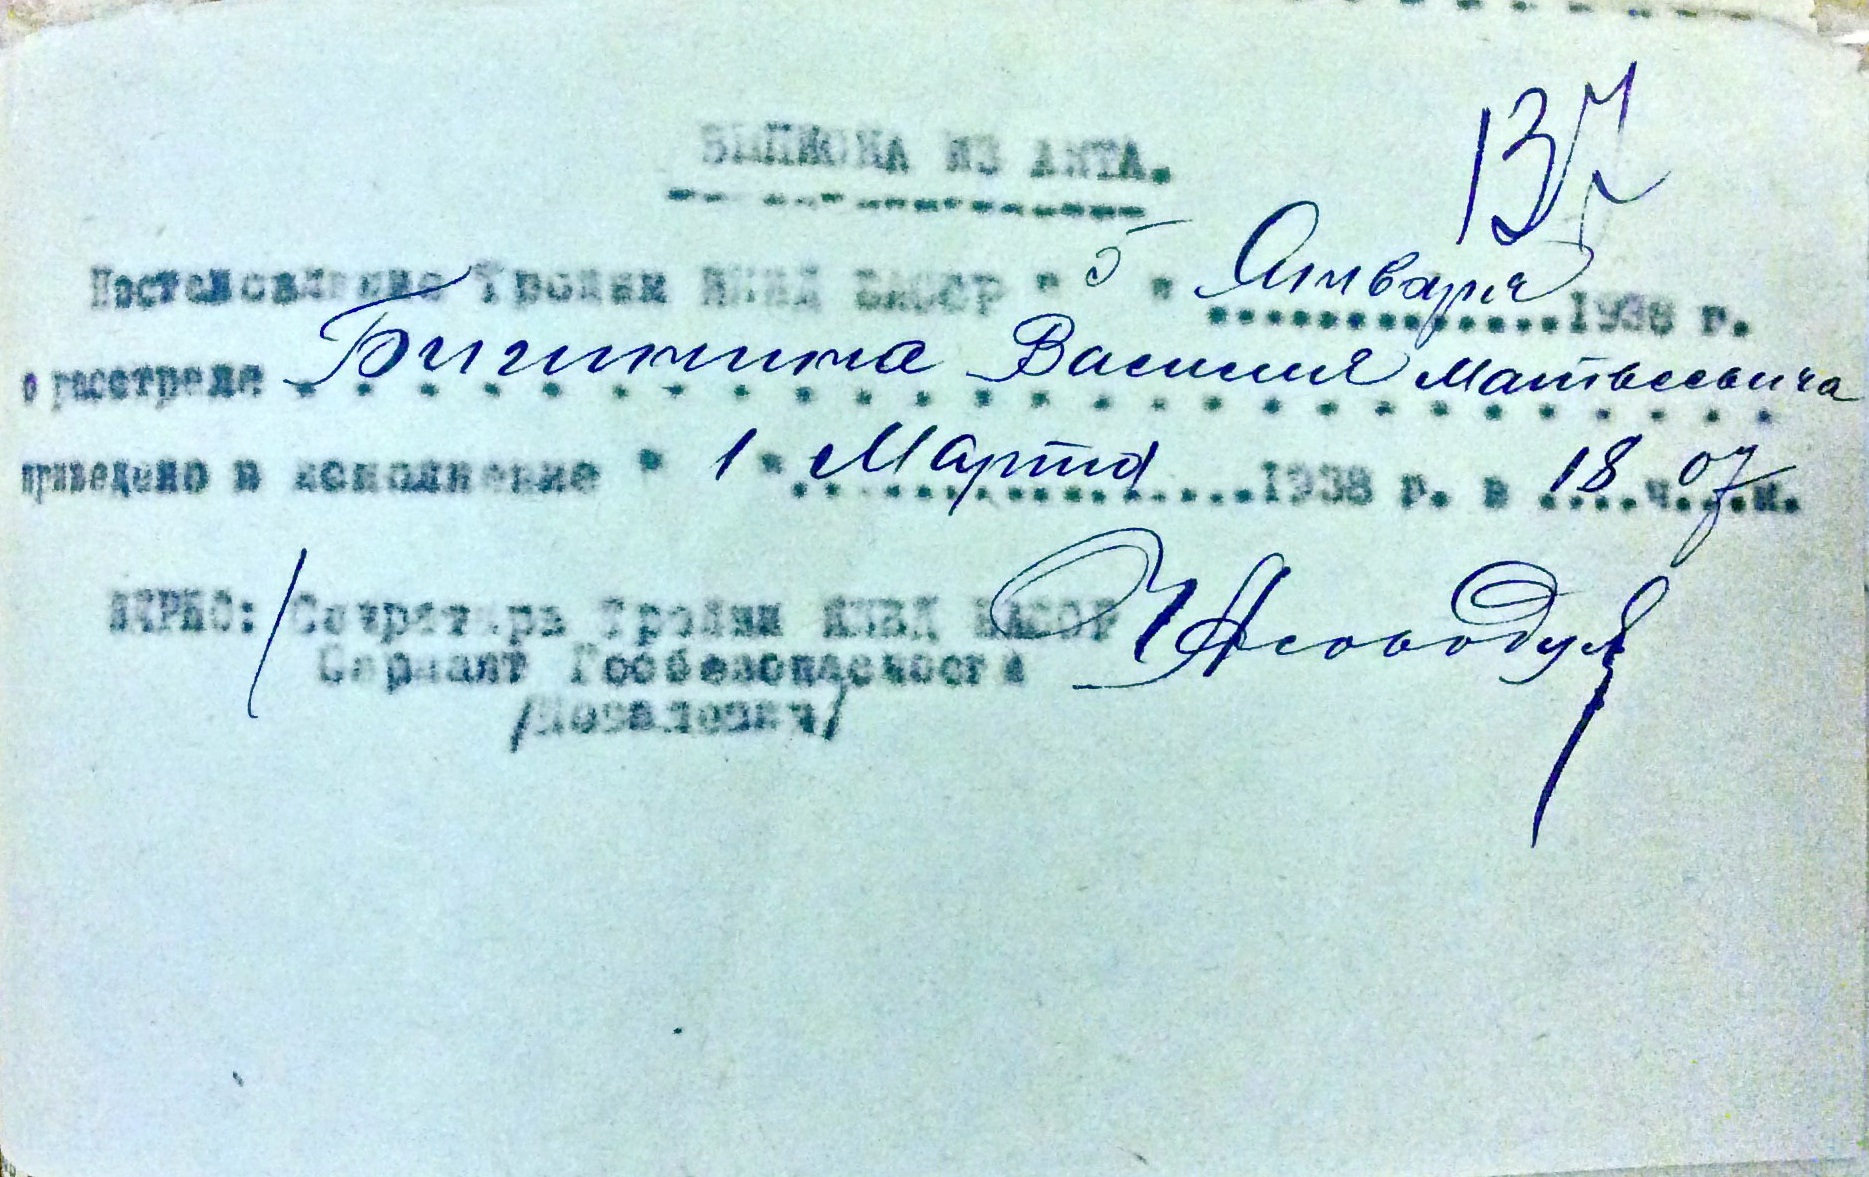 137
ВЫПИСКА ИЗ АКТА.
Постановление Тройки НКВД БАССР " 5 " Января 1938 г.
о расстреле Бигинина Василия Матвеевича
приведено в исполнение " 1 " Марта 1938 г. в 18 ч. 07 м.
ВЕРНО: Секретарь Тройки НКВД БАССР
Сержант Госбезопасности